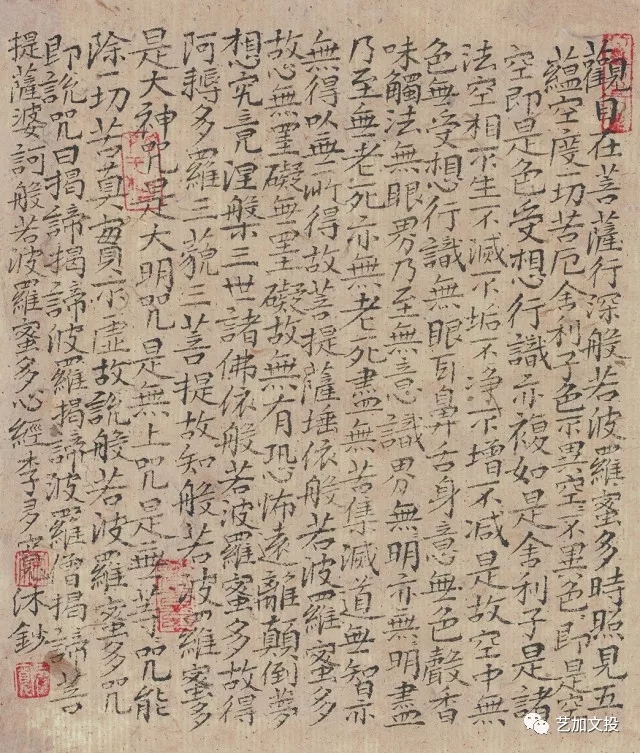 觀自在菩薩行深般若波羅蜜多時照見五
蘊空度一切苦厄舍利子色不異空不異色即是空
空即是色受想行識亦複如是舍利子是諸
法空相不生不滅不垢不淨不增不减是故空中無
色無受想行識無眼耳鼻舌身意無色聲香
味觸法無眼界乃至無意識界無明亦無明盡
乃至無老死亦無老死盡無苦集滅道無智亦
無得以無所得故菩提薩埵依般若波羅蜜多
故心無罣礙無罣礙故無有恐怖遠離顛倒夢
想究竟涅槃三世諸佛依般若波羅蜜多故得
阿耨多羅三藐三菩提故知般若波羅蜜多
是大神咒是大明咒是無上咒是無等咒能
除一切苦真實不虛故說般若波羅蜜多咒
即說咒曰揭諦揭諦波羅揭諦波羅僧揭諦菩
提薩婆訶般若波羅蜜多心經李多沐鈔
艺加文投